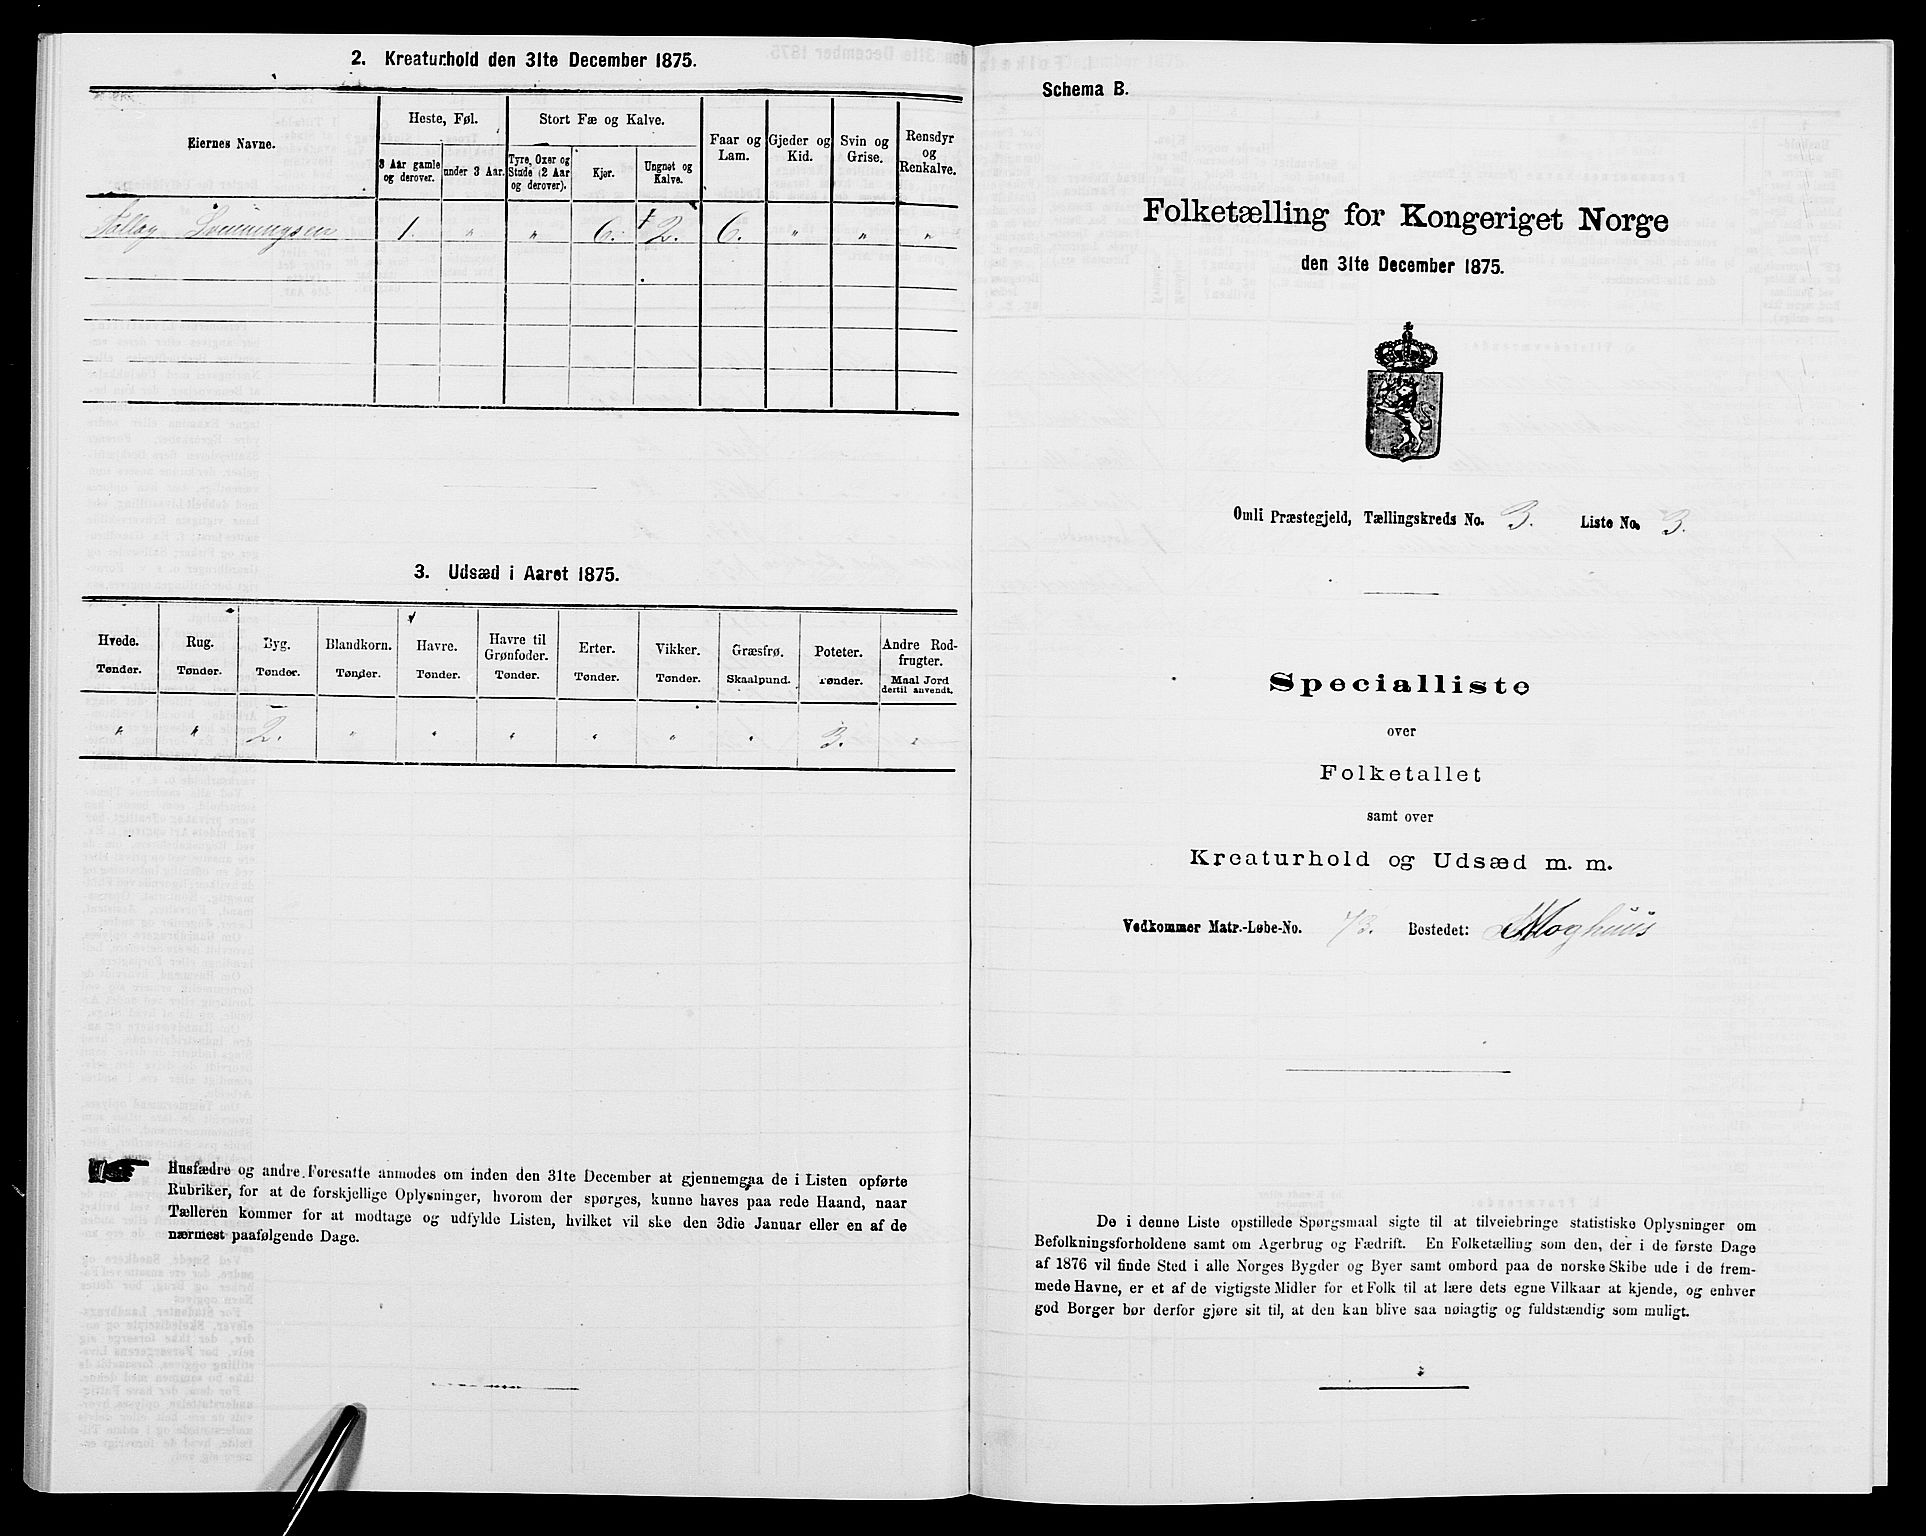 2. Kreaturhold den 31te December 1875.
Eiernes Navne.
Heste, Føl.
3 Aar gamle og derover.
under 3 Aar.
Stort Fæ og Kalve.
Tyre, Oxer og Stude (2 Aar og derover).
Kjør.
Ungnøt og Kalve.
Faar og Lam.
Gjeder og Kid.
Svin og Grise.
Rensdyr og Renkalve.
1. " " 6. 2. 6. " " "
3. Udsæd i Aaret 1875.
Hvede. Tønder.
Rug. Tønder.
Byg. Tønder.
Blandkorn. Tønder.
Havre. Tønder.
Havre til Grønfoder. Tønder.
Erter. Tønder.
Vikker. Tønder.
Græsfrø. Skaalpund.
Poteter. Tønder.
Andre Rodfrugter. Maal Jord dertil anvendt.
" " 2. " " " " " " 3. "
Husfædre og andre Foresatte anmodes om inden den 31te December at gjennemgaa de i Listen opførte
Rubriker, for at de forskjellige Oplysninger, hvorom der spørges, kunne haves paa rede Haand, naar
Tælleren kommer for at modtage og udfylde Listen, hvilket vil ske den 3die Januar eller en af de
nærmest paafølgende Dage.
Schema B.
Folketælling for Kongeriget Norge
den 31te December 1875.
Omli Præstegjeld, Tællingskreds No. 3. Liste No. 3.
Specialliste
over
Folketallet
samt over
Kreaturhold og Udsæd m. m.
Vedkommer Matr.-Løbe-No. 73. Bostedet: Moghuus
De i denne Liste opstillede Spørgsmaal sigte til at tilveiebringe statistiske Oplysninger om
Befolkningsforholdene samt om Agerbrug og Fædrift. En Folketælling som den, der i de første Dage
af 1876 vil finde Sted i alle Norges Bygder og Byer samt ombord paa de norske Skibe ude i de frem-
mede Havne, er et af de vigtigste Midler for et Folk til at lære dets egne Vilkaar at kjende, og enhver
god Borger bør derfor gjøre sit til, at den kan blive saa nøiagtig og fuldstændig som muligt.